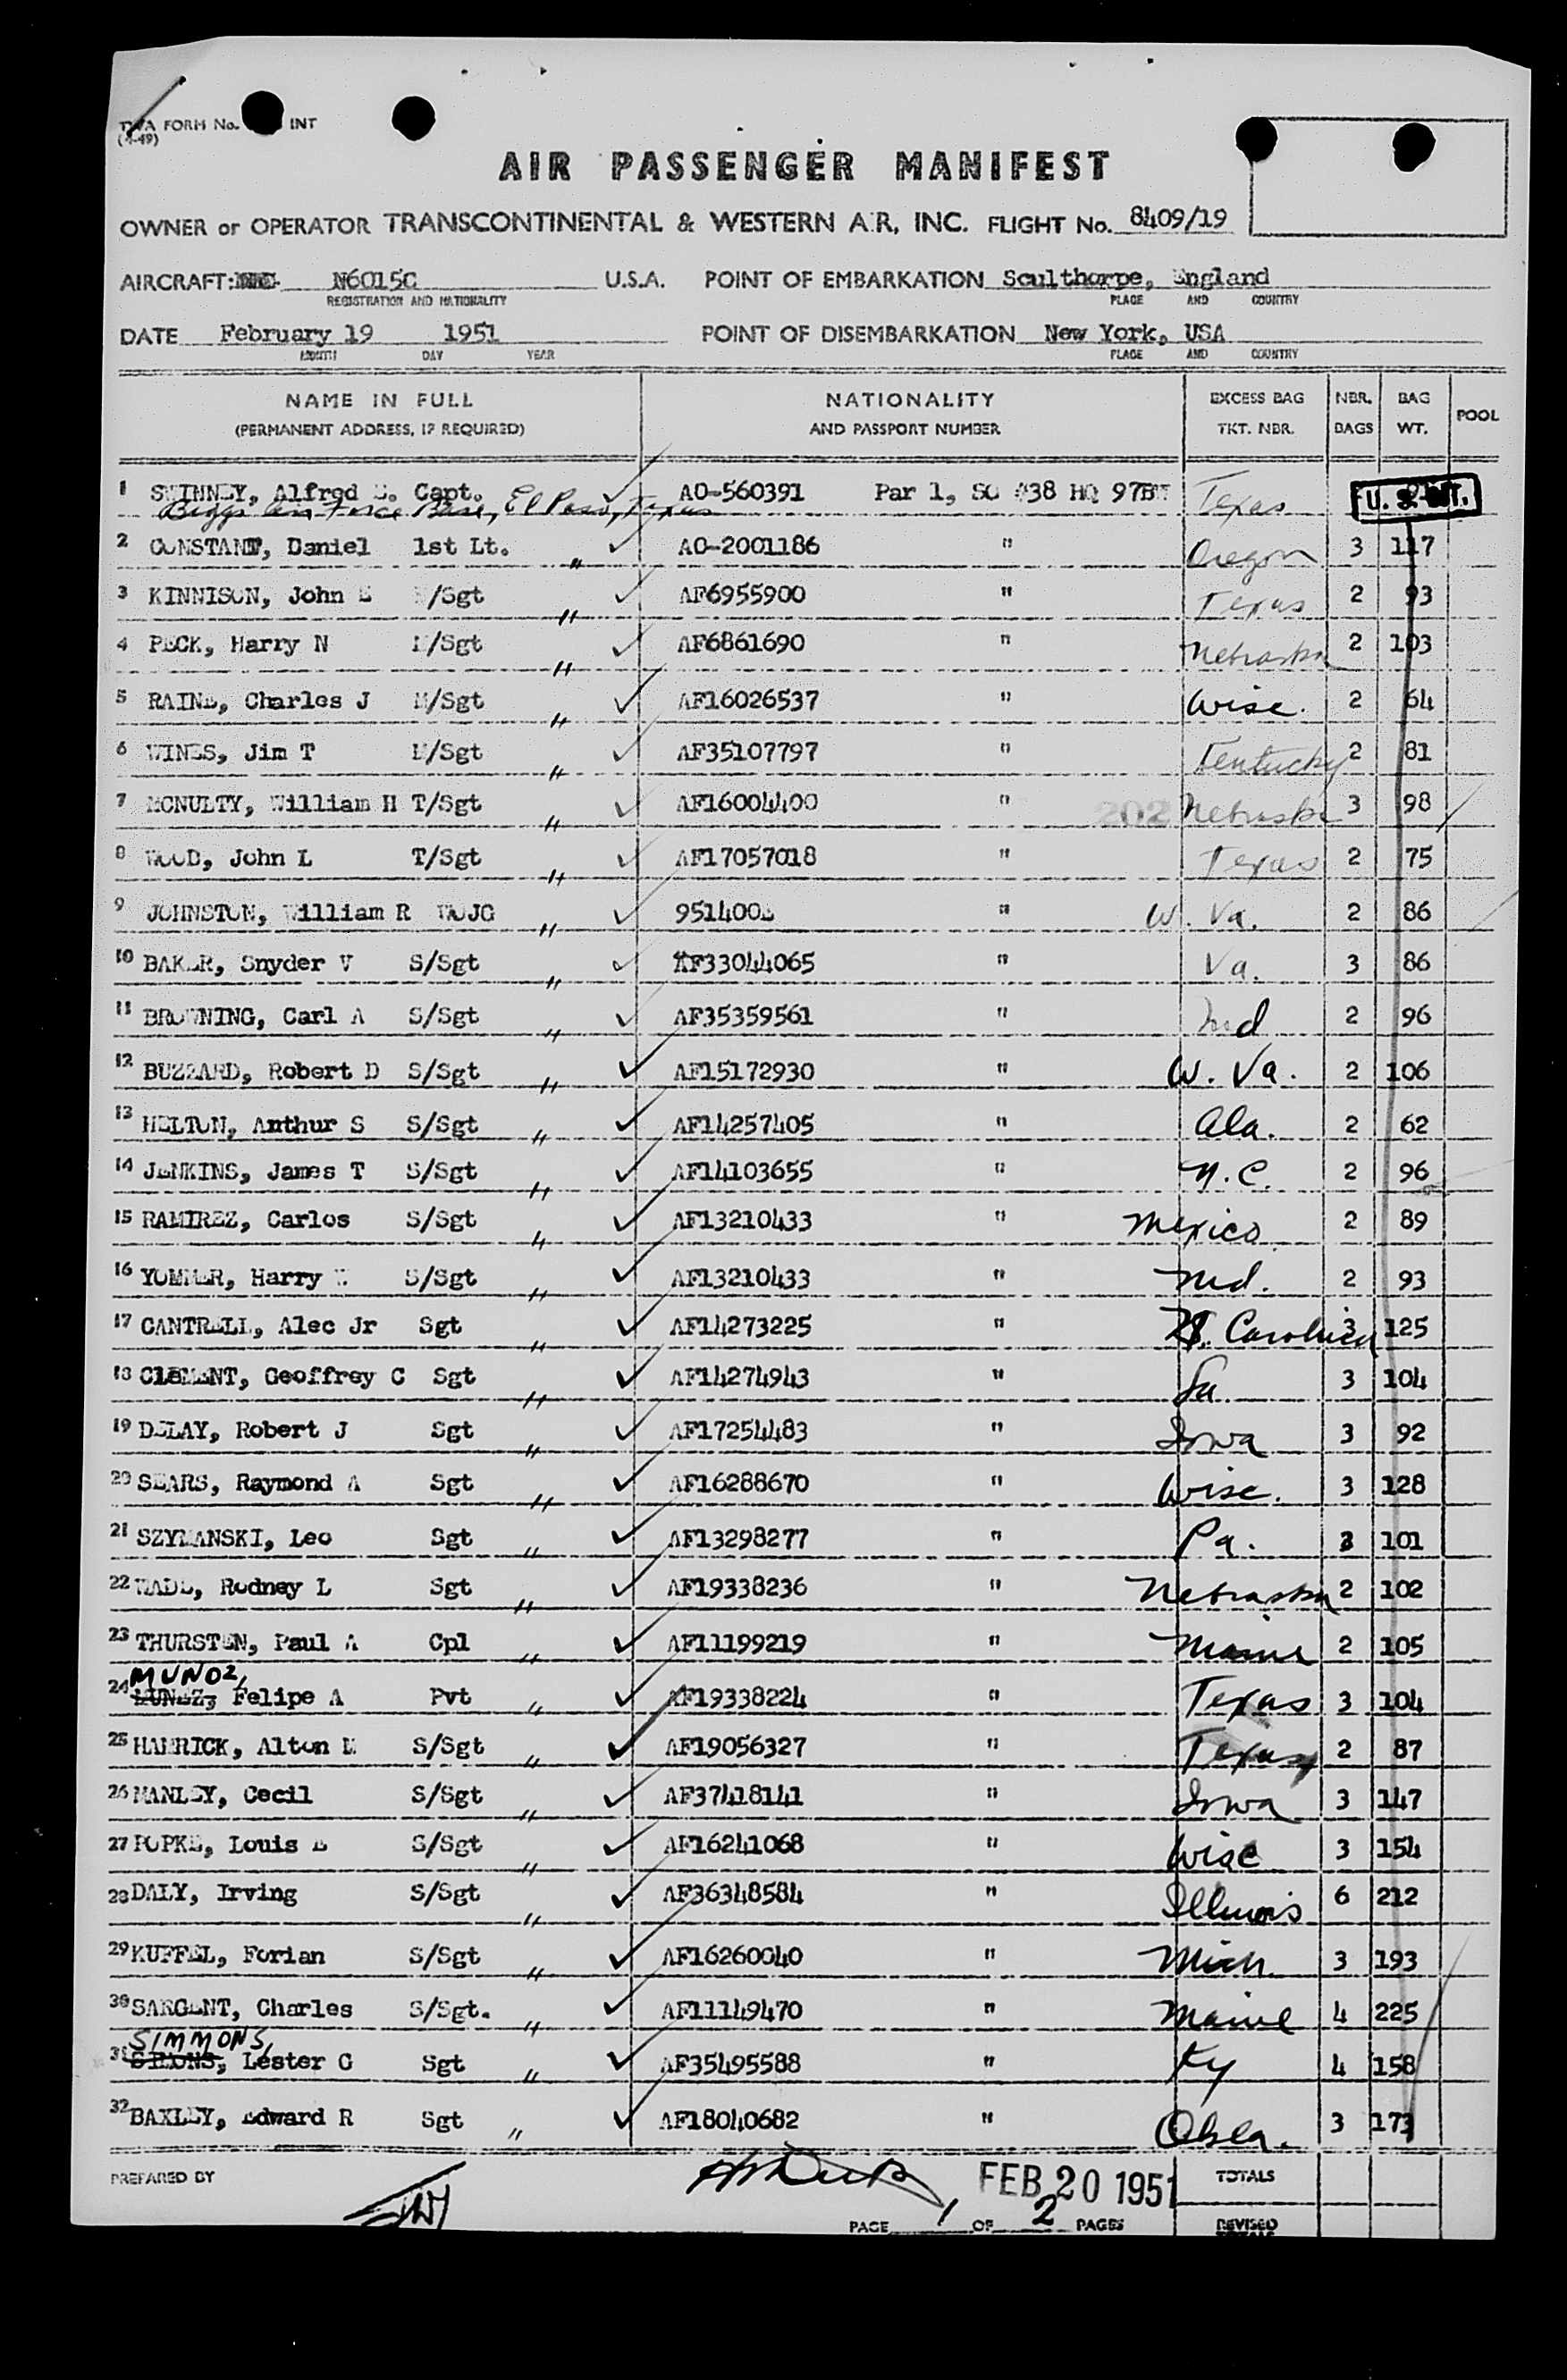 TWA FORM No. INT
(4-49)
AIR PASSENGER MANIFEST
OWNER or OPERATOR TRANSCONTINENTAL & WESTERN AIR, INC. FLIGHT No. 8409/19
AIRCRAFT: N6015C U.S.A. POINT OF EMBARKATION Sculthorpe, England
REGISTRATION AND NATIONALITY PLACE AND COUNTRY
DATE February 19 1951 POINT OF DISEMBARKATION New York, USA
MONTH DAY YEAR PLACE AND COUNTRY
NAME IN FULL NATIONALITY EXCESS BAG NBR. BAG POOL
(PERMANENT ADDRESS, IF REQUIRED) AND PASSPORT NUMBER TKT. NBR. BAGS WT.
1 SWINNEY, Alfred Capt. AO-560391 Par 1, SO #38 HQ 97BW Texas U. S. CIT.
Biggs Air Force Base, El Paso, Texas
2 CONSTANT, Daniel 1st Lt. " AO-2001186 " Oregon 3 117
3 KINNISON, John E M/Sgt " AF6955900 " Texas 2 93
4 PECK, Harry N M/Sgt " AF6861690 " Nebraska 2 103
5 RAINE, Charles J M/Sgt " AF16026537 " Wisc. 2 64
6 WINES, Jim T M/Sgt " AF35107797 " Kentucky 2 81
7 MCNULTY, William H T/Sgt " AF16004400 " 202 Nebraska 3 98
8 WOOD, John L T/Sgt " AF17057018 " Texas 2 75
9 JOHNSTON, William R WOJG " 951400 " W. Va. 2 86
10 BAKER, Snyder V S/Sgt " AF33044065 " Va. 3 86
11 BROWNING, Carl A S/Sgt " AF35359561 " Ind 2 96
12 BUZZARD, Robert D S/Sgt " AF15172930 " W. Va. 2 106
13 HELTON, Anthur S S/Sgt " AF14257405 " Ala. 2 62
14 JENKINS, James T S/Sgt " AF14103655 " N.C. 2 96
15 RAMIREZ, Carlos S/Sgt " AF13210433 " Mexico 2 89
16 YOMMER, Harry W S/Sgt " AF13210433 " Md. 2 93
17 CANTRELL, Alec Jr Sgt " AF14273225 " Carolina 3 125
18 CLEMENT, Geoffrey C Sgt " AF14274943 " 3 104
19 DELAY, Robert J Sgt " AF17254483 " Iowa 3 92
20 SEARS, Raymond A Sgt " AF16288670 " Wisc. 3 128
21 SZYMANSKI, Leo Sgt " AF13298277 " Pa. 3 101
22 WADE, Rodney L Sgt " AF19338236 " Nebraska 2 102
23 THURSTEN, Paul A Cpl " AF11199219 " Maine 2 105
MUNOZ,
24 MUNEZ, Felipe A Pvt " AF19338224 " Texas 3 104
25 HAMRICK, Alton M S/Sgt " AF19056327 " Texas 2 87
26 MANLEY, Cecil S/Sgt " AF37418141 " Iowa 3 147
27 POPKE, Louis E S/Sgt " AF16241068 " Wisc 3 154
28 DALY, Irving S/Sgt " AF36348584 " Illinois 6 212
29 KUFFEL, Forian S/Sgt " AF16260040 " Mich. 3 193
30 SARGENT, Charles S/Sgt. " AF11149470 " Maine 4 225
SIMMONS,
31 SIMONS, Lester G Sgt " AF35495588 " Ky 4 158
32 BAXLEY, Edward R Sgt " AF18040682 " Okla. 3 173
PREPARED BY FEB 20 1951 TOTALS
PAGE 1 OF 2 PAGES REVISED
TOTALS